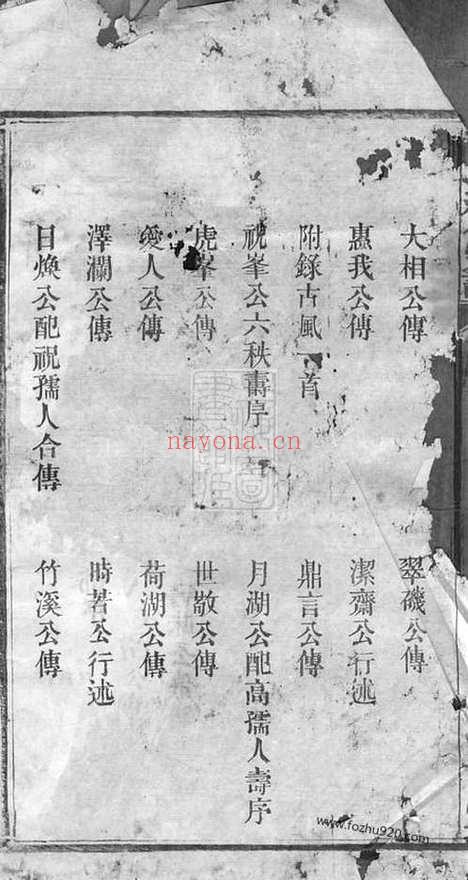 大相公傳　翠磯公傳
惠我公傳　潔齋公行述
附錄古風一首　鼎言公傳
祝峯公六秩壽序　月湖公配高孺人壽序
虎峯公傳　世敬公傳
愛人公傳　荷湖公傳
澤瀾公傳　時若公行述
日煥公配祝孺人合傳　竹溪公傳
nayona.cn
www.fozhu920.com